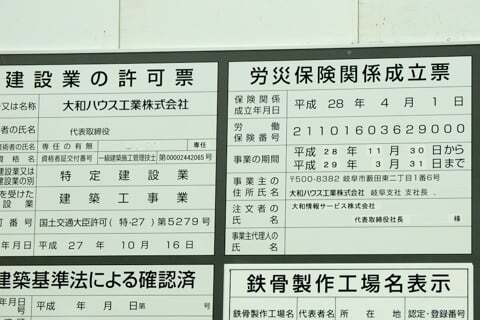 建設業の許可票
又は名称 大和ハウス工業株式会社
者の氏名 代表取締役
術者の氏名 専任の有無 専任
資格名 資格者証交付番号 一級建築施工管理技士 第00002442065号
建設業又は
建設業の別 特定建設業
を受けた
設業 建築工事業
可番号 国土交通大臣許可(特-27)第5279号
年月日 平成 27年 10月 16日
建築基準法による確認済
年月日
番号 平成 年 月 日 第 号
労災保険関係成立票
保険関係
成立年月日 平成 28年 4月 1日
労働
保険番号 211101603629000
事業の期間 平成 28年 11月 30日から
平成 29年 3月 31日まで
事業主の
住所氏名 〒500-8382 岐阜市薮田東二丁目1番6号
大和ハウス工業株式会社 岐阜支社 支社長
注文者の
氏名 大和情報サービス株式会社
代表取締役社長 様
事業主代理人の
氏名
鉄骨製作工場名表示
鉄骨製作工場名 代表者名 所在地 認定・登録番号